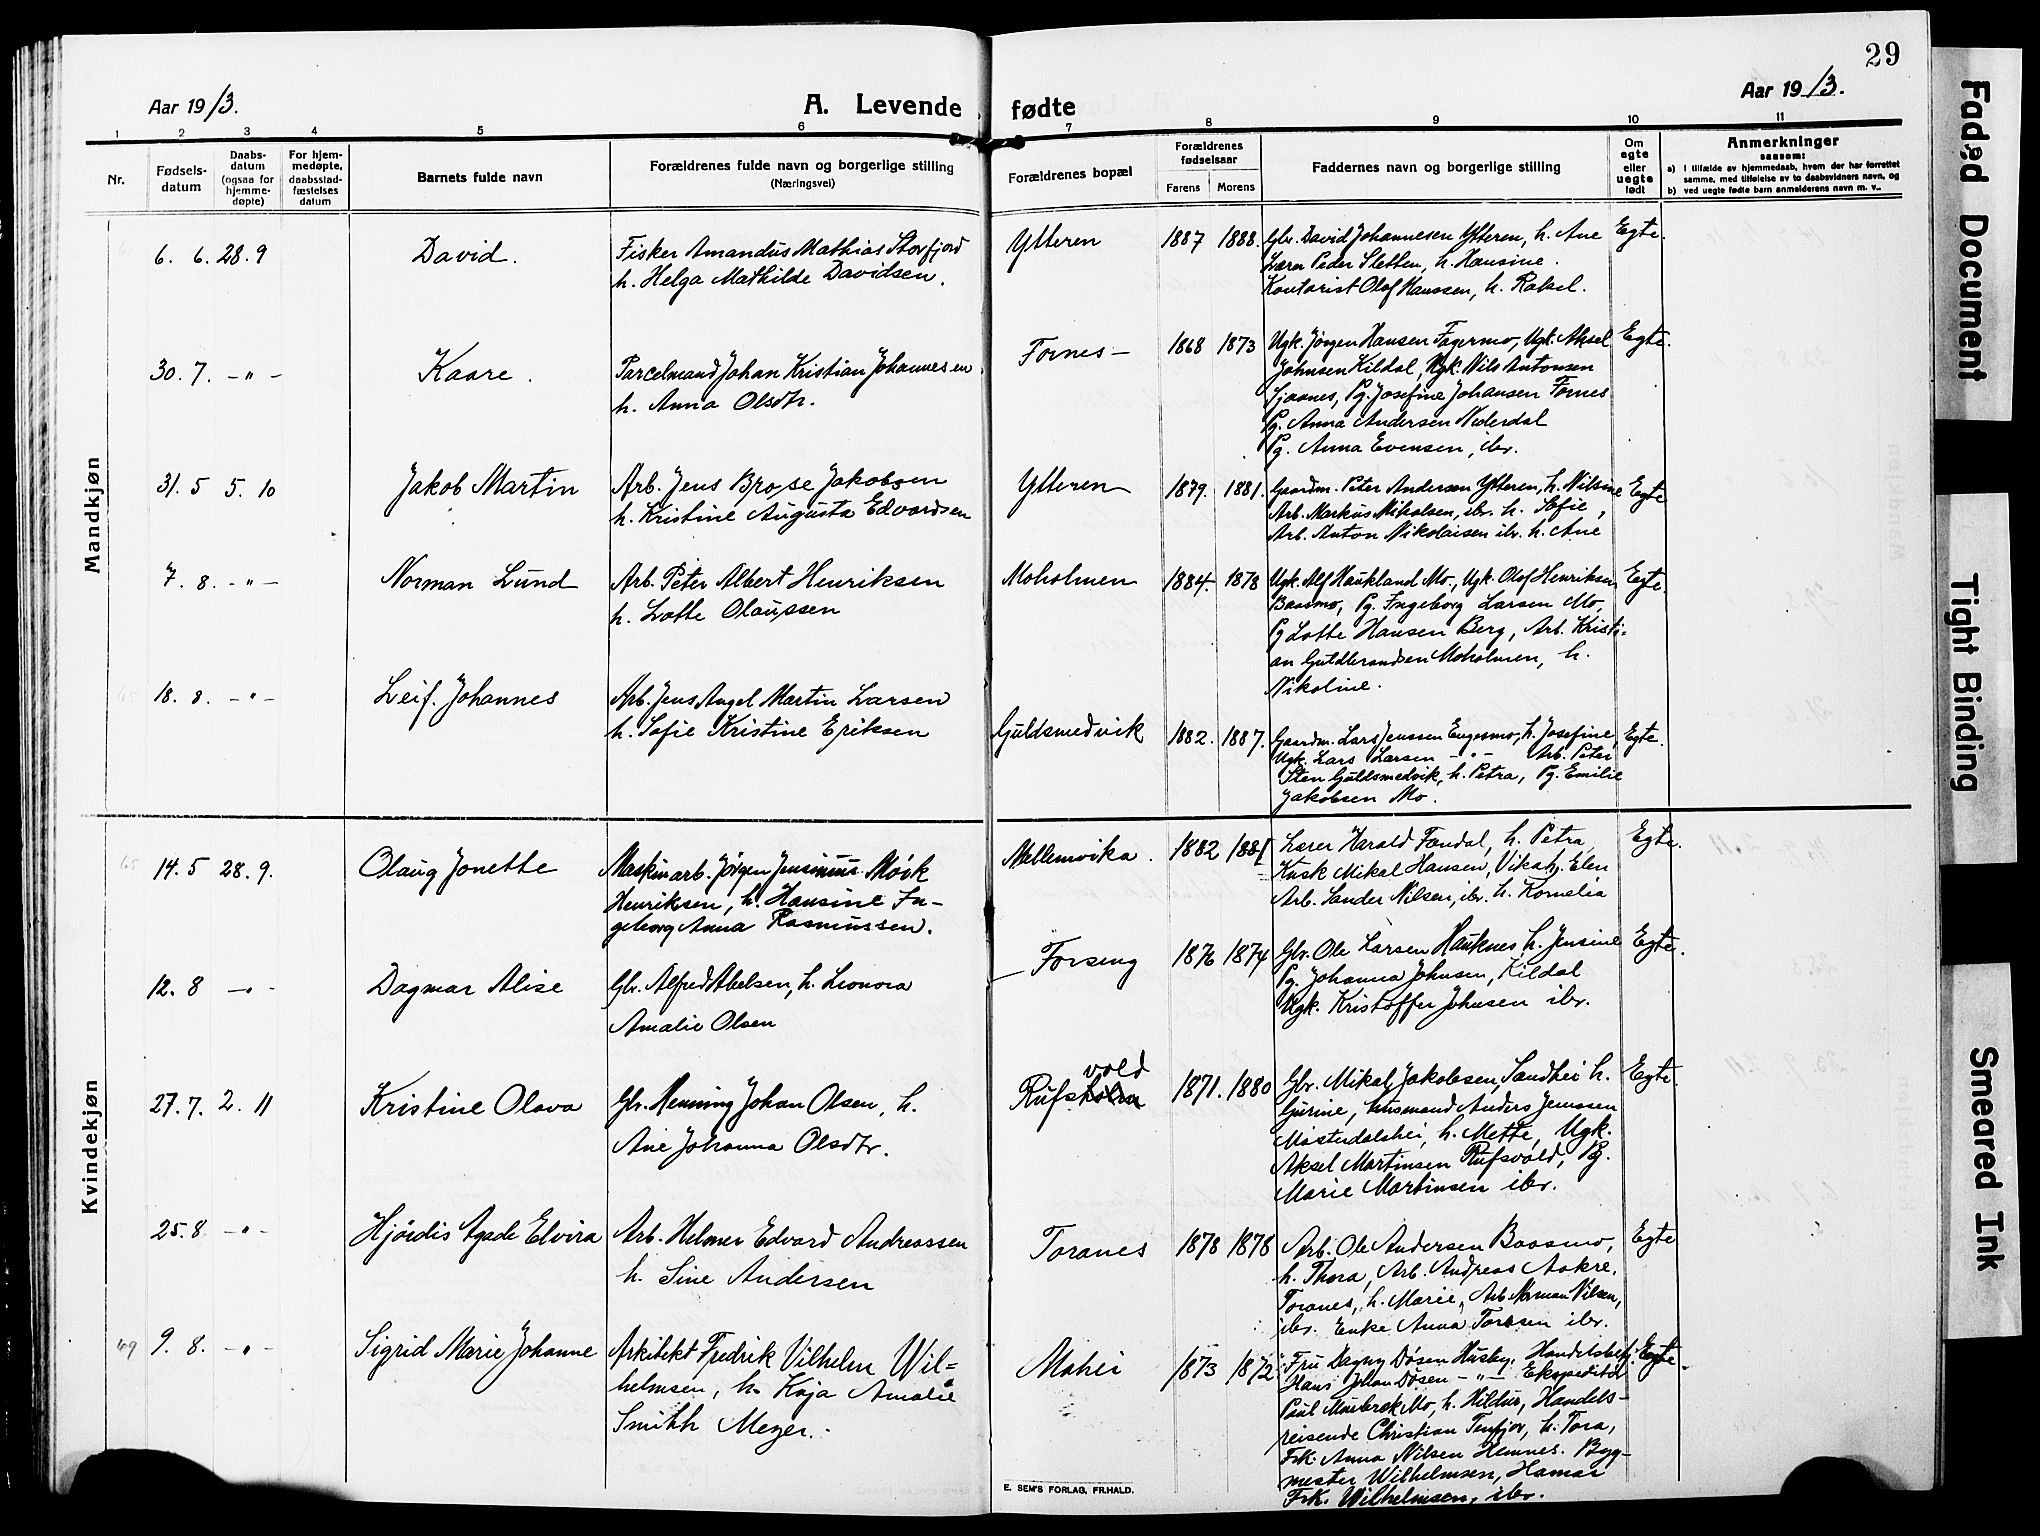 29
Aar 1913.
A. Levende fødte
Aar 1913.
1 2 3 4 5 6 7 8 9 10 11
Nr.
Fødselsdatum
Daabsdatum (ogsaa for hjemmedøpte)
For hjemmedøpte, daabsstadfæstelses datum
Barnets fulde navn
Forældrenes fulde navn og borgerlige stilling
(Næringsvei)
Forældrenes bopæl
Forældrenes fødselsaar
Farens Morens
Faddernes navn og borgerlige stilling
Om egte eller uegte født
Anmerkninger
saasom:
a) I tilfælde av hjemmedaab, hvem der har forrettet samme, med tilføielse av to daabsvidners navn, og
b) ved uegte fødte barn anmelderens navn m. v..
Mandkjøn
6. 6. 28. 9
David.
Fisker Amandus Mathias Storfjord
h. Helga Mathilde Davidsen.
Ytteren
1887 1888.
Gbr. David Johannesen Ytteren, h. Ane
Lærer Peder Sletten, h. Hansine.
Kontorist Olof Hanssen, h. Rakel.
Egte.
30. 7. -"-
Kaare.
Parcelmand Johan Kristian Johannesen
h. Anna Olsdtr.
Fornes-
1868 1873
Ugk. Jørgen Hansen Fagermo, Ugk. Aksel
Johnsen Kildal, Ugk. Nils Antonsen
Sjaanes, Pg. Josefine Johansen Fornes
Pg. Anna Andersen Nederdal
Pg. Anna Evensen, ibr.
Egte.
31. 5 5. 10
Jakob Martin
Arb. Jens Brose Jakobsen
h. Kristine Augusta Edvardsen
Ytteren
1879. 1881.
Gaardm. Peter Andersen Ytteren, h. Nilsine
Arb. Markus Mikalsen, ibr. h. Sofie,
Arb. Anton Nikolaisen ibr. h. Ane
Egte
7. 8. -"-
Norman Lund
Arb. Peter Albert Henriksen
h. Lotte Olaussen
Moholmen
1884. 1878
Ugk. Alf Haukland Mo, Ugk. Olof Henriksen
Baasmo, Pg. Ingeborg Larsen Mo,
Pg Lotte Hansen Berg, Arb. Kristi-
an Guldbrandsen Moholmen, h.
Nikoline.
Egte.
18. 8. -"-
Leif Johannes
Arb. Jens Angel Martin Larsen
h. Sofie Kristine Eriksen
Guldsmedvik
1882. 1887.
Gaardm. Lars Jenssen Engesmo, h. Josefine,
Ugk. Lars Larsen -"- Arb. Peter
Sten Guldsmedvik, h. Petra, Pg. Emilie
Jakobsen Mo.
Egte.
Kvindekjøn
14. 5 28. 9.
Olaug Jonette
Maskinarb. Jørgen Jensinius Mørk
Henriksen, h. Hansine In-
geborg Anna Rasmussen.
Mellemvika.
1882 1881
Lærer Harald Fondal, h. Petra,
Kusk Mikal Hansen, Vika h. Elen
Arb. Sander Nilsen, ibr. h. Kornelia
Egte.
12. 8 -"-
Dagmar Alise
Gbr. Alfred Abelsen, h. Leonora
Amalie Olsen
Forseng
1876 1874
Gbr. Ole Larsen Hauknes, h. Jensine
Pg. Johanna Johnsen, Kildal
Ugk. Kristoffer Johnsen ibr.
Egte.
27. 7. 2. 11
Kristine Olava
Gbr. Henning Johan Olsen, h.
Ane Johanna Olsdtr.
Rufsvold
1871. 1880
Gbr. Mikal Jakobsen, Sandhei h.
Gurine, husmand Anders Jenssen
Mosterdalshei, h. Mette, Ugk.
Aksel Martinsen Rufsvold, Pg.
Marie Martinsen ibr.
Egte.
25. 8 -"-
Hjørdis Agade Elvira
Arb. Helmer Edvard Andreassen
h. Sine Andersen
Toranes
1878 1878
Arb. Ole Andersen Baasmo,
h. Thora, Arb. Andreas Aakre,
Toranes, h. Marie, Arb. Norman Nilsen,
ibr. Enke Anna Toresen ibr.
Egte
49
9. 8. -"-
Sigrid Marie Johanne
Arkitekt Fredrik Vilhelm Wil=
helmsen, h. Kaja Amalie
Smith Meyer.
Mohei
1873 1872
Fru Dagny Døsen Husby, Handelsbetj.
Hans Johan Døsen -"- Ekspeditør
Paul Mo, h. Hildur, Handels-
reisende Christian Tenfjor, h. Tora,
Frk. Anna Nilsen Hemnes. Byg-
mester Wilhelmsen, Hamar
Frk. Wilhelmsen, ibr.
Egte.
E. SEM'S FORLAG, FR.HALD.
Faded Document
Tight Binding
Smeared Ink